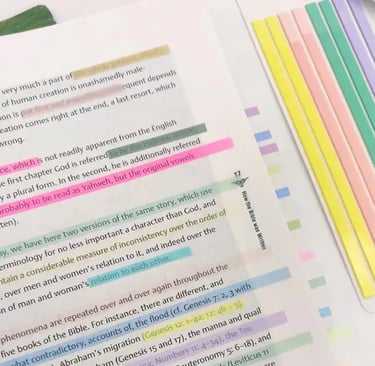 very much a part of
of human creation is unashamedly male-
tion is (not first and every equent depends
eation comes right at the end, a last resort, which
wrong.
nce, which is not readily apparent from the English
e first chapter God is referred to by the Hebrew
y a plural form. In the second, he is additionally referred
probably to be read as Yahweh, but the original vowels
ten).
17
How the Bible was Written
y, we have here two versions of the same story, which use
terminology for no less important a character than God, and
ntain a considerable measure of inconsistency over the order of
, over men and women's relation to it, and indeed over the
on of man and woman's relation to each other.
phenomena are repeated over and over again throughout the
five books of the Bible. For instance, there are different, and
what contradictory, accounts of, the flood (cf. Genesis 7: 2, 3 with
(Genesis 12: 1-4a; 12: 4b - 5),
f Abraham's migration
ham (Genesis 15 and 17), the manna and quail
g, Numbers 11: 4-34), the Ten
uteronomy 5: 6-18), and
(Leviticus 11